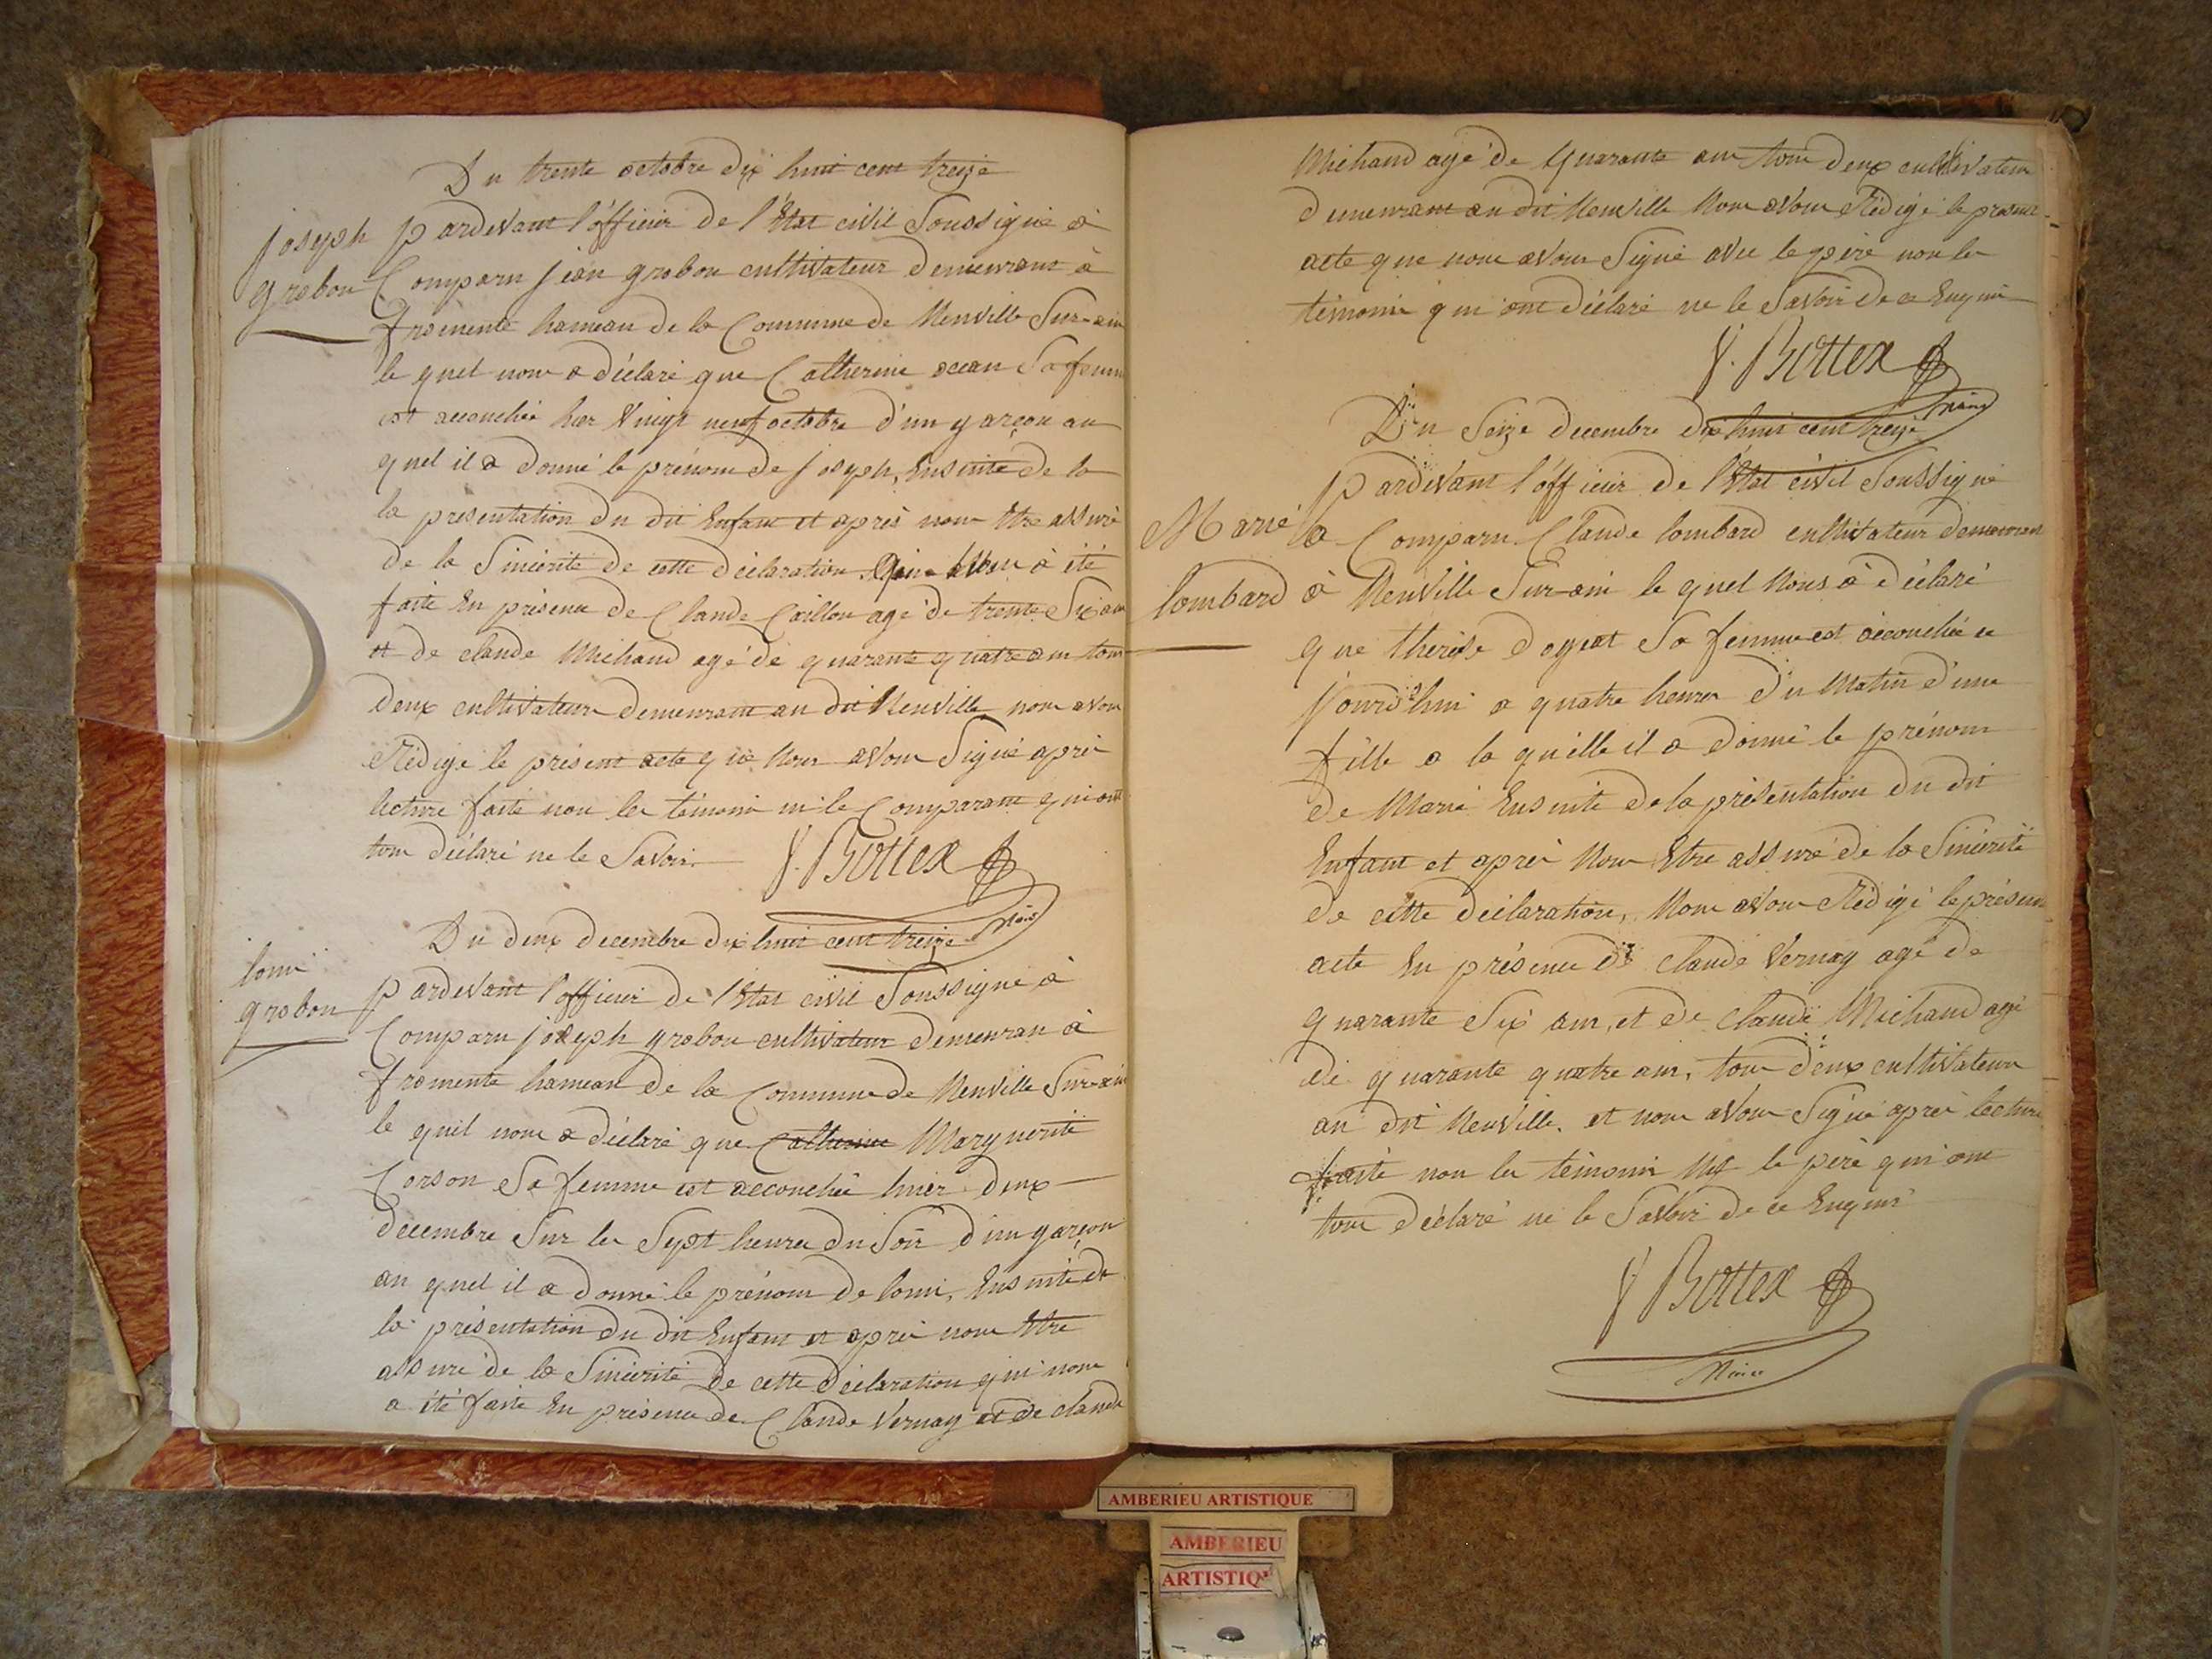 Du trente octobre dix huit cent treize
joseph
grobon
pardevant l'officier de l'Etat civil Soussigné à
Comparu jean grobon cultivateur demeurant à
fromente hameau de la Commune de Neuville Sur-ain
le quel nous a déclaré que Catherine Sa femme
est accouchée hier Vingt neuf octobre d'un garçon au
quel il a donné le prénom de joseph, Ensuite de la
la presentation du dit Enfant et après nous Etre assuré
de la Sincérité de cette déclaration à été
faite En présence de Claude Caillon agé de trente Six ans
et de claude Michaud agé de quarante quatre ans tous
deux cultivateurs demeurant au dit Neuville nous avons
Rédigé le présent acte que Nous avons Signé après
lecture faite non les témoins ni le Comparant qui ont
tous déclaré ne le Savoir.
J. Bottex
Maire
Du deux decembre dix huit cent treize
louis
grobon
pardevant l'officier de l'Etat civil Soussigné à
Comparu joseph grobon cultivateur demeuran à
fromente hameau de la Commune de Neuville Sur-ain
le quel nous a déclaré que Catherine Marguerite
Corson Sa femme est accouchée hier deux
decembre Sur les Sept heures du Soir d'un garçon
au quel il a donné le prénom de louis, Ensuite de
la présentation du dit Enfant et après nous Etre
assuré de la Sincérité de cette déclaration qui nous
a été faite En présence de Claude Vernay et de claude
Michaud agé de Quarante ans tous deux cultivateurs
demeurant au dit Neuville Nous avons Rédigé le présent
acte que nous avons Signé avec le père non les
témoins qui ont déclaré ne le Savoir de ce Enquis
J. Bottex
Maire
Du Seize decembre dix huit cent treize
pardevant l'officier de l'Etat civil Soussigné
Marie
lombard
a Comparu Claude lombard cultivateur demeurant
à Neuville Sur-ain le quel Nous à déclaré
que therese Sa femme est accouchée ce
jourd'hui a quatre heures du Matin d'une
fille a la quelle il a donné le prénom
de Marie Ensuite de la présentation du dit
Enfant et après Nous Etre assuré de la Sincérité
de cette déclaration, Nous avons Rédigé le présent
acte En présence de claude Vernay agé de
quarante Six ans, et de Claude Michaud agé
de quarante quatre ans, tous deux cultivateurs
au dit Neuville. et nous avons Signé après lecture
faite non les témoins le père qui ont
tous déclaré ne le Savoir de ce Enquis
J Bottex
Maire
AMBERIEU ARTISTIQUE
AMBERIEU
ARTISTIQ